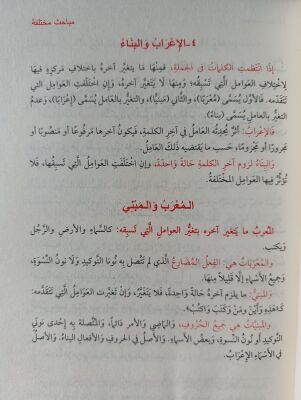 مباحث مختلفة
٤ـ الإِعْرَابُ وَالبِنَاءُ
إِذَا انْتَظَمَتِ الكَلِمَاتُ فِي الجُمْلَةِ، فَمِنْهَا مَا يَتَغَيَّرُ آخِرُهُ بِاخْتِلَافِ مَرْكَزِهِ فِيهَا
لِاخْتِلَافِ العَوَامِلِ الَّتِي تَسْبِقُهُ؛ وَمِنْهَا لَا يَتَغَيَّرُ آخِرُهُ، وَإِنْ اخْتَلَفَتِ العَوَامِلُ الَّتِي
تَتَقَدَّمُه. فَالأَوَّلُ يُسَمَّى (مُعْرَبًا)، وَالثَّانِي (مَبْنِيًّا)، وَالتَّغَيُّرُ بِالعَامِلِ يُسَمَّى (إِعْرَابًا)، وَعَدَمُ
التَّغَيُّرِ بِالعَامِلِ يُسَمَّى (بِنَاءً).
فَالإِعْرَابُ: أَثَرٌ يُحْدِثُهُ العَامِلُ فِي آخِرِ الكَلِمَةِ، فَيَكُونُ آخِرُهَا مَرْفُوعًا أَو مَنْصُوبًا أَو
مَجْرُورًا أَو مَجْزُومًا، حَسَبَ مَا يَقْتَضِيهِ ذَلِكَ العَامِلُ.
وَالبِنَاءُ لُزُوم آخِرِ الكَلِمَةِ حَالَةً وَاحِدَةً، وإِن اخْتَلَفَتِ العَوَامِلُ الَّتِي تَسْبِقُهَا، فَلَا
تُؤَثِّرُ فِيهَا العَوَامِلُ المُخْتَلِفَةُ.
المُعْرَبُ وَالمَبْنِيُّ
المُعْرَبُ مَا يَتغير آخره بِتغيُّرِ العَوَامِلِ الَّتِي تَسبِقه: كالسَّماءِ والأرضِ والرَّجُلِ
ويَكتب.
وَالمُعْرَبَاتُ هِيَ: الفِعْلُ المُضَارِعُ الَّذِي لَم تَتَّصِل بِهِ نُونا التَّوكيدِ وَلَا نُونُ النِّسْوَةِ،
وَجَمِيعُ الأَسْمَاءِ إِلَّا قَلِيلًا مِنْهَا.
وَالمَبْنِيُّ: مَا يلزم آخرُهُ حَالَةً وَاحِدةً، فَلَا يَتَغَيَّرُ، وَإِن تَغَيَّرت العَوَامِلُ الَّتي تَتَقَدَّمه:
كَـ(هَذِهِ وَأَيْنَ وَمَنْ وَكَتَبَ وَاكْتُبْ).
والمبنيَّاتُ هِيَ جَمِيعُ الحُرُوفِ، وَالمَاضِي وَالأَمر دَائِمًا، وَالمُتَّصِلَة بِهِ إِحْدَى نونَي
التَّوكيدِ أَو نُونُ النِّسْوَةِ، وَبعضُ الأَسماءِ. وَالأَصلُ فِي الحروفِ وَالأَفعالِ البناءُ. وَالأَصلُ
فِي الأَسمَاءِ الإِعْرَابُ.